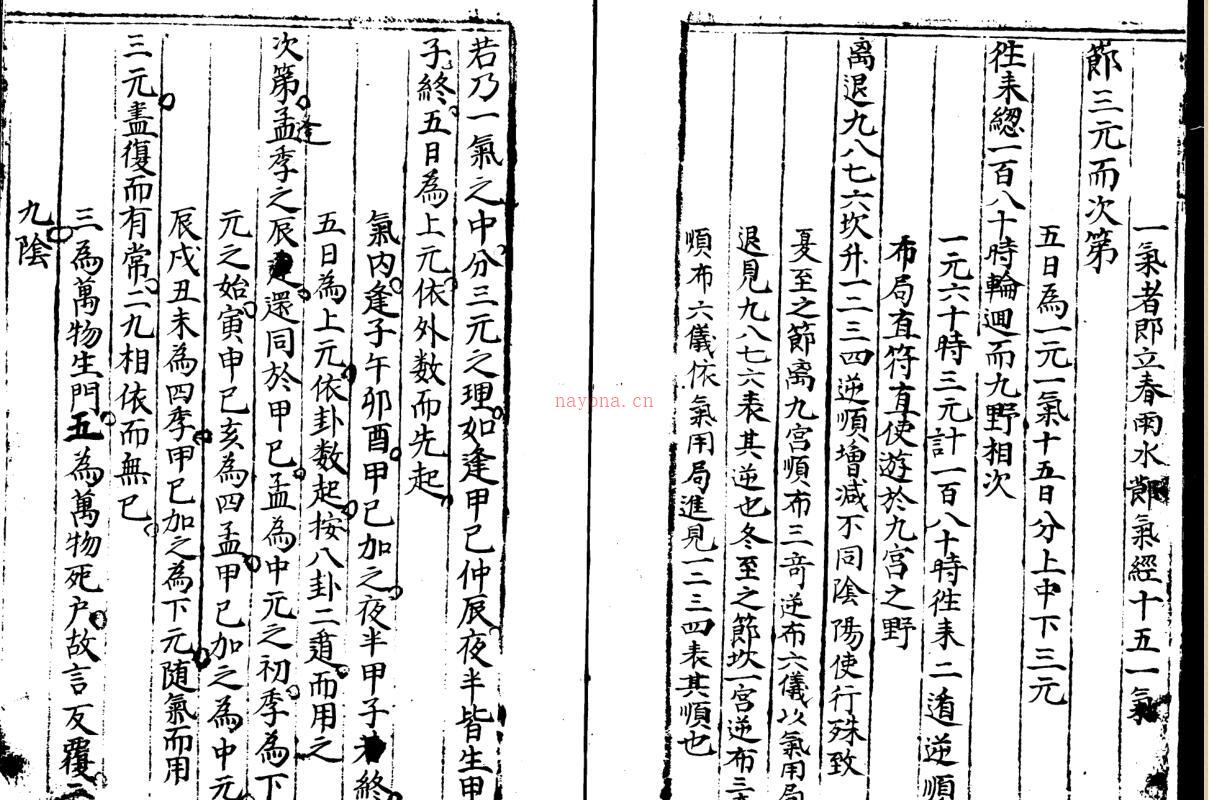 一氣者即立春雨水節氣經十五一氣
節三元而次第
五日為一元一氣十五日分上中下三元
徃来緫一百八十時輪迴而九野相次
一元六十時三元計一百八十時徃来二遁逆順
布局直符直使遊於九宫之野
离退九八七六坎升一二三四逆順增减不同陰陽使行殊致
夏至之節离九宫順布三竒逆布六儀以氣用局
退見九八七六表其逆也冬至之節坎一宫逆布三
順布六儀依氣用局進見一二三四表其順也
若乃一氣之中分三元之理如逢甲己仲辰夜半皆生甲
子終五日為上元依外数而先起
氣内逢子午卯酉甲己加之夜半甲子終
五日為上元依卦数起按八卦二遁而用之
次第逢孟季之辰還同於甲己孟為中元之初季為下
元之始寅申巳亥為四孟甲己加之為中元
辰戌丑未為四季甲己加之為下元随氣而用
三元盡復而有常二九相依而無已
三為萬物生門五為萬物死户故言反覆
九陰
nayona.cn